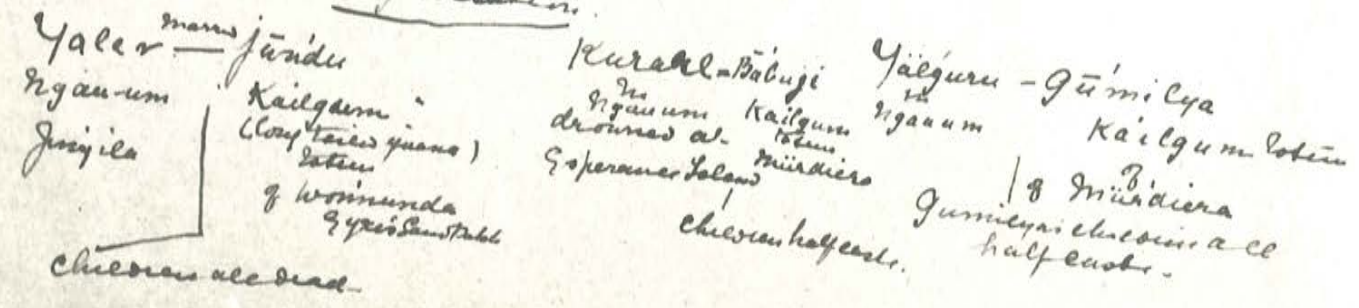 Yaler married Jūndu
Ngau-um
Jinjila
Kailgum
(long tailed iguana)
totem
of Wonnunda
Eyre's Sand Patch
children all dead
Kurall - Bābuji
m
Nganum Kailgum
drowned at totem
Esperance Island Mūrdiera
children half caste.
Yälguru - Gūmilya
m
Nganum Kailgum totem
of Mūrdiera
Gumilya's children all
half caste.